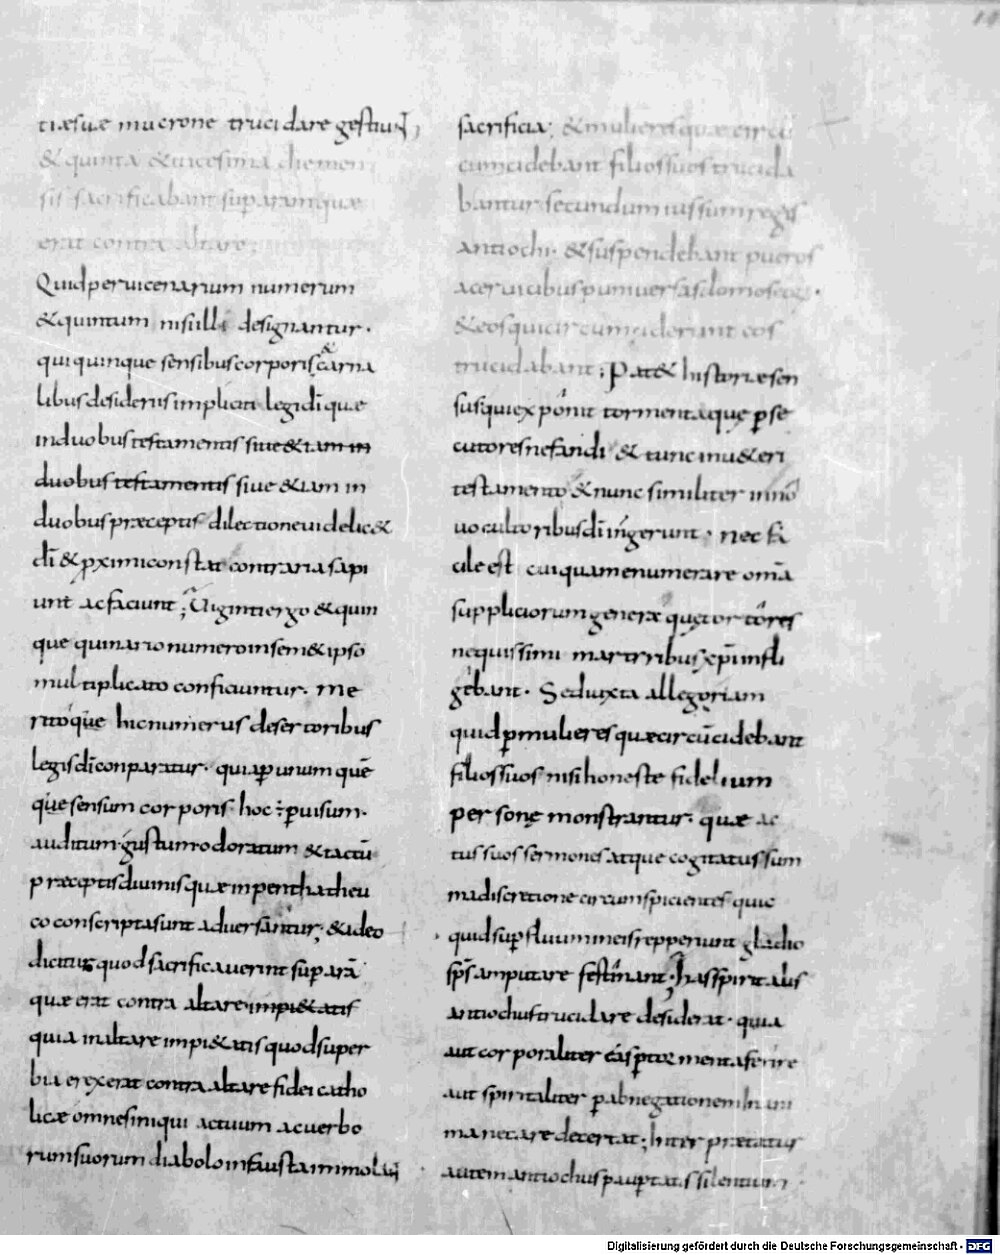 tiæ suæ mucrone trucidare gestiunt;
& quinta & uicesima die men
sis sacrificabant sup aram quæ
erat contra altare;
Quid per uicenarium numerum
& quintum nisi illi designantur.
qui quinque sensibus corporis & carna
libus desideriis impliciti legi dī quæ
in duobus testamentis siue & iam in
duobus testamentis siue & iam in
duobus præceptis dilectione uidelic&
dī & pximi constat contraria sapi
unt ac faciunt; Uiginti ergo & quin
que quinario numero in sem& ipso
multiplicato conficiuntur. me
ritoque hic numerus desertoribus
legis dī conparatur. quia p unum quē
que sensum corporis. hoc ÷ p uisum.
auditum. gustum. odoratum & tactū
præceptis diuinis quæ in penthatheu
co conscripta sunt aduersantur; & ideo
dicitur quod sacrificauerint sup arā
quæ erat contra altare impi&atis
quia in altare impi&atis quod super
bia erexerat contra altare fidei catho
licæ omnes iniqui actuum ac uerbo
rum suorum diabolo infausta immolant
sacrificia; & mulieres quæ circū
cumcidebant filios suos trucida
bantur secundum iussum regis
antiochi. & suspendebant pueros
a ceruicibus p uniuersas domos eorum.
& eos qui circumciderant eos
trucidabant; Pat& historiæ sen
sus qui exponit tormenta quę pse
cutores nefandi & tunc in u&eri
testamento & nunc similiter in no
uo cultoribus dī ingerunt. nec fa
cile est cuiquam enumerare omīa
suppliciorum genera quę tortores
nequissimi martyribus xpī infli
gebant. Sed iuxta allegoriam
quid p mulieres quæ circūcidebant
filios suos nisi honeste fidelium
personę monstrantur. quæ ac
tus suos sermones atque cogitatus sum
ma discretione circumspicientes quic
quid supfluum in eis repperiunt gladio
sps amputare festinant; has spiritalis
antiochus trucidare desiderat. quia
aut corporaliter eas p tormenta ferire
aut spiritaliter p abnegationem in ani
ma necare decertat; Inter præcatur
autem antiochus p auptatis silentium
Digitalisierung gefördert durch die Deutsche Forschungsgemeinschaft - DFG